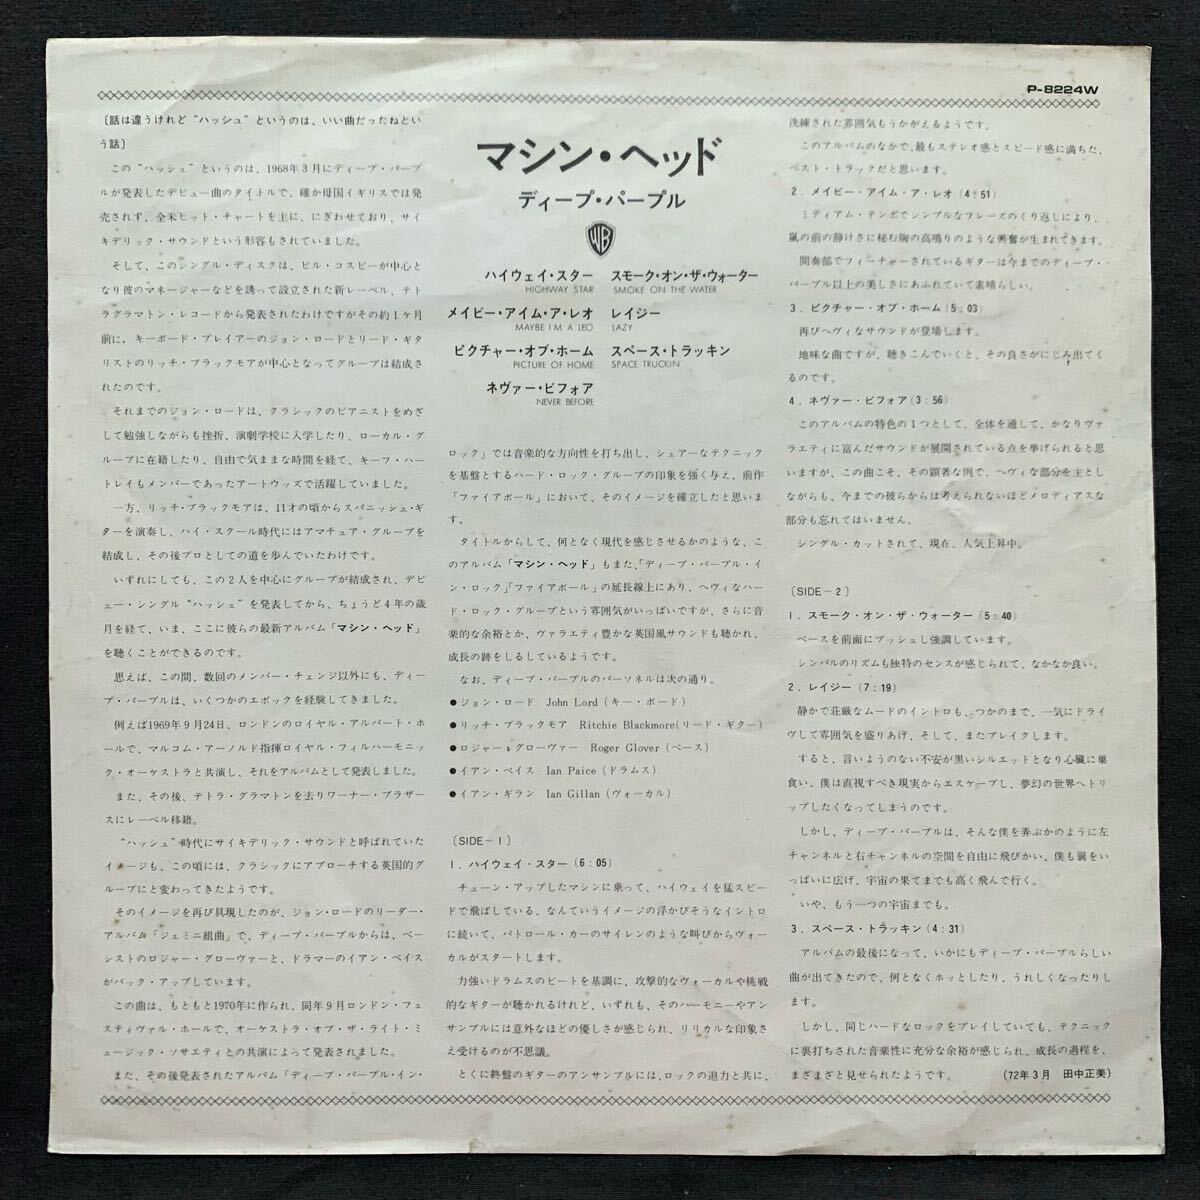 P-8224W
〔話は違うけれど“ハッシュ”というのは、いい曲だったねとい
う話〕
この“ハッシュ”というのは、1968年3月にディープ・パープ
ルが発表したデビュー曲のタイトルで、確か母国イギリスでは発
売されず、全米ヒット・チャートを主に、にぎわせており、サイ
キデリック・サウンドという形容もされていました。
そして、このシングル・ディスクは、ビル・コスビーが中心と
なり彼のマネージャーなどを誘って設立された新レーベル、テト
ラグラマトン・レコードから発表されたわけですがその約1ケ月
前に、キーボード・プレイアーのジョン・ロードとリード・ギタ
リストのリッチ・ブラックモアが中心となってグループは結成さ
れたのです。
それまでのジョン・ロードは、クラシックのピアニストをめざ
して勉強しながらも挫折、演劇学校に入学したり、ローカル・グ
ループに在籍したり、自由で気ままな時間を経て、キーフ・ハー
トレイもメンバーであったアートウッズで活躍していました。
一方、リッチ・ブラックモアは、11才の頃からスパニッシュ・ギ
ターを演奏し、ハイ・スクール時代にはアマチュア・グループを
結成し、その後プロとしての道を歩んでいたわけです。
いずれにしても、この2人を中心にグループが結成され、デビ
ュー・シングル“ハッシュ”を発表してから、ちょうど4年の歳
月を経て、いま、ここに彼らの最新アルバム「マシン・ヘッド」
を聴くことができるのです。
思えば、この間、数回のメンバー・チェンジ以外にも、ディー
プ・パープルは、いくつかのエポックを経験してきました。
例えば1969年9月24日、ロンドンのロイヤル・アルバート・ホ
ールで、マルコム・アーノルド指揮ロイヤル・フィルハーモニッ
ク・オーケストラと共演し、それをアルバムとして発表しました。
また、その後、テトラ・グラマトンを去りワーナー・ブラザー
スにレーベル移籍。
“ハッシュ”時代にサイキデリック・サウンドと呼ばれていた
イメージも、この頃には、クラシックにアプローチする英国的グ
ループにと変わってきたようです。
そのイメージを再び具現したのが、ジョン・ロードのリーダー・
アルバム「ジェミニ組曲」で、ディープ・パープルからは、ベー
シストのロジャー・グローヴァーと、ドラマーのイアン・ペイス
がバック・アップしています。
この曲は、もともと1970年に作られ、同年9月ロンドン・フェ
スティヴァル・ホールで、オーケストラ・オブ・ザ・ライト・ミ
ュージック・ソサエティとの共演によって発表されました。
また、その後発表されたアルバム「ディープ・パープル・イン・
マシン・ヘッド
ディープ・パープル
WB
ハイウェイ・スター
HIGHWAY STAR
メイビー・アイム・ア・レオ
MAYBE I'M A LEO
ピクチャー・オブ・ホーム
PICTURE OF HOME
ネヴァー・ビフォア
NEVER BEFORE
スモーク・オン・ザ・ウォーター
SMOKE ON THE WATER
レイジー
LAZY
スペース・トラッキン
SPACE TRUCKIN
ロック」では音楽的な方向性を打ち出し、シュアーなテクニック
を基盤とするハード・ロック・グループの印象を強く与え、前作
「ファイアボール」において、そのイメージを確立したと思いま
す。
タイトルからして、何となく現代を感じさせるかのような、こ
のアルバム「マシン・ヘッド」もまた、「ディープ・パープル・イ
ン・ロック」「ファイアボール」の延長線上にあり、ヘヴィなハー
ド・ロック・グループという雰囲気がいっぱいですが、さらに音
楽的な余裕とか、ヴァラエティ豊かな英国風サウンドも聴かれ、
成長の跡をしるしているようです。
なお、ディープ・パープルのパーソネルは次の通り。
●ジョン・ロード John Lord (キー・ボード)
●リッチ・ブラックモア Ritchie Blackmore(リード・ギター)
●ロジャー・グローヴァー Roger Glover (ベース)
●イアン・ペイス Ian Paice (ドラムス)
●イアン・ギラン Ian Gillan (ヴォーカル)
〔SIDE-1〕
1. ハイウェイ・スター (6:05)
チューン・アップしたマシンに乗って、ハイウェイを猛スピー
ドで飛ばしている、なんていうイメージの浮かびそうなイントロ
に続いて、パトロール・カーのサイレンのような叫びからヴォー
カルがスタートします。
力強いドラムスのビートを基調に、攻撃的なヴォーカルや挑戦
的なギターが聴かれるけれど、いずれも、そのハーモニーやアン
サンブルには意外なほどの優しさが感じられ、リリカルな印象さ
え受けるのが不思議。
とくに終盤のギターのアンサンブルには、ロックの迫力と共に、
洗練された雰囲気もうかがえるようです。
このアルバムのなかで、最もステレオ感とスピード感に満ちた、
ベスト・トラックだと思います。
2. メイビー・アイム・ア・レオ (4:51)
ミディアム・テンポでシンプルなフレーズのくり返しにより、
嵐の前の静けさに秘む胸の高鳴りのような興奮が生まれてきます。
間奏部でフィーチャーされているギターは今までのディープ・
パープル以上の美しさにあふれていて素晴らしい。
3. ピクチャー・オブ・ホーム (5:03)
再びヘヴィなサウンドが登場します。
地味な曲ですが、聴きこんでいくと、その良さがにじみ出てく
るのです。
4. ネヴァー・ビフォア (3:56)
このアルバムの特色の1つとして、全体を通して、かなりヴァ
ラエティに富んだサウンドが展開されている点を挙げられると思
いますが、この曲こそ、その顕著な例で、ヘヴィな部分を主とし
ながらも、今までの彼らからは考えられないほどメロディアスな
部分も忘れてはいません。
シングル・カットされて、現在、人気上昇中。
〔SIDE-2〕
1. スモーク・オン・ザ・ウォーター (5:40)
ベースを前面にプッシュし強調しています。
シンバルのリズムも独特のセンスが感じられて、なかなか良い。
2. レイジー (7:19)
静かで荘厳なムードのイントロも、つかのまで、一気にドライ
ヴして雰囲気を盛りあげ、そして、またブレイクします。
すると、言いようのない不安が黒いシルエットとなり心臓に巣
食い、僕は直視すべき現実からエスケープし、夢幻の世界へトリ
ップしたくなってしまうのです。
しかし、ディープ・パープルは、そんな僕を弄ぶかのように左
チャンネルと右チャンネルの空間を自由に飛びかい、僕も翼をい
っぱいに広げ、宇宙の果てまでも高く飛んで行く。
いや、もう一つの宇宙までも。
3. スペース・トラッキン (4:31)
アルバムの最後になって、いかにもディープ・パープルらしい
曲が出てきたので、何となくホッとしたり、うれしくなったりし
ます。
しかし、同じハードなロックをプレイしていても、テクニック
に裏打ちされた音楽性に充分な余裕が感じられ、成長の過程を、
まざまざと見せられたようです。 (72年3月 田中正美)